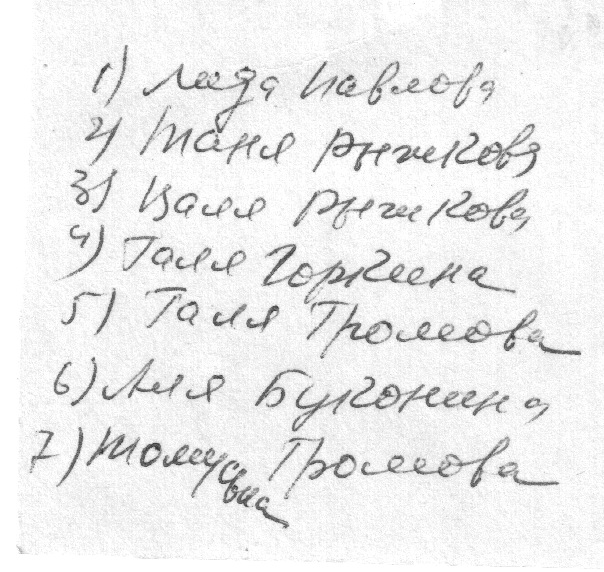 1) Лида Павлова
2) Таня Рыжкова
3) Валя Рыжкова
4) Галя Горкина
5) Галя Громова
6) Аля Буконина
7) Томусьна Громова